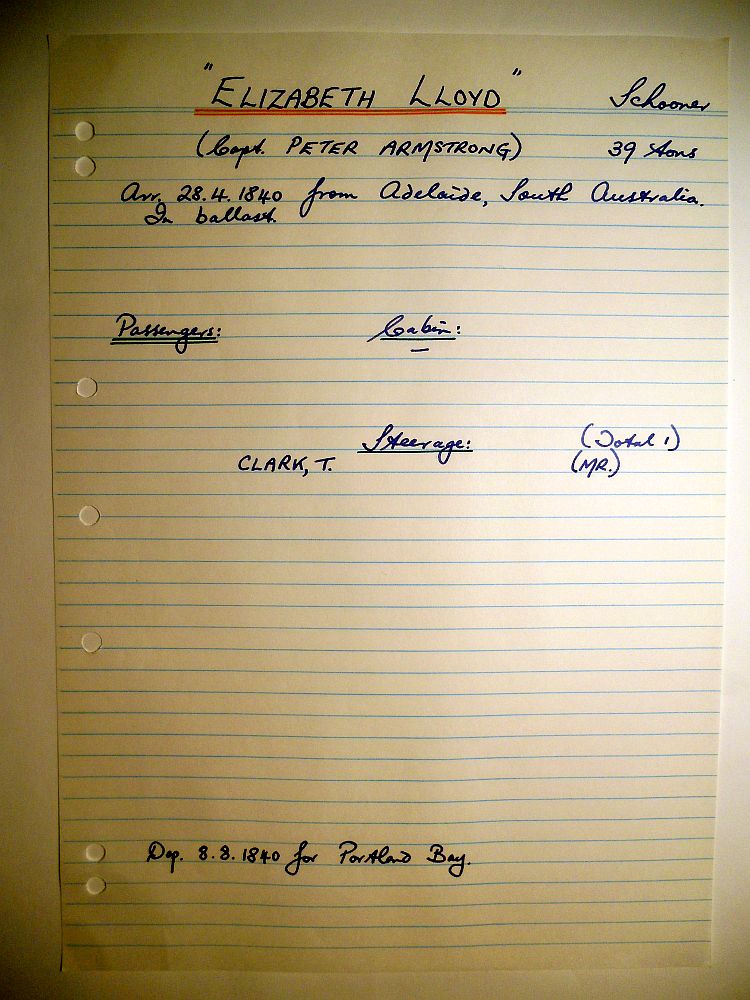 "ELIZABETH LLOYD" Schooner
(Capt. PETER ARMSTRONG) 39 tons
Arr. 28.4.1840 from Adelaide, South Australia.
In ballast.
Passengers: Cabin:
—
Steerage: (Total 1)
CLARK, T. (MR.)
Dep. 8.8.1840 for Portland Bay.